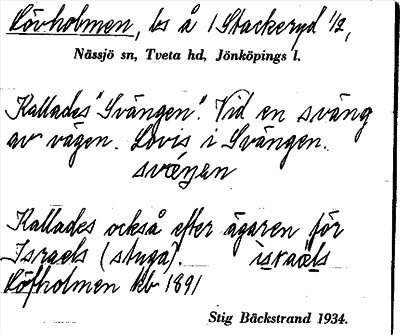 Lövholmen, ls å 1 Stackeryd 1/2,
Nässjö sn, Tveta hd, Jönköpings l.
Kallades "Svängen". Vid en sväng
av vägen. Lovis i Svängen.
svéŋen
Kallades också efter ägaren för
Israels (stuga). israels
Löfholmen kb 1891
Stig Bäckstrand 1934.